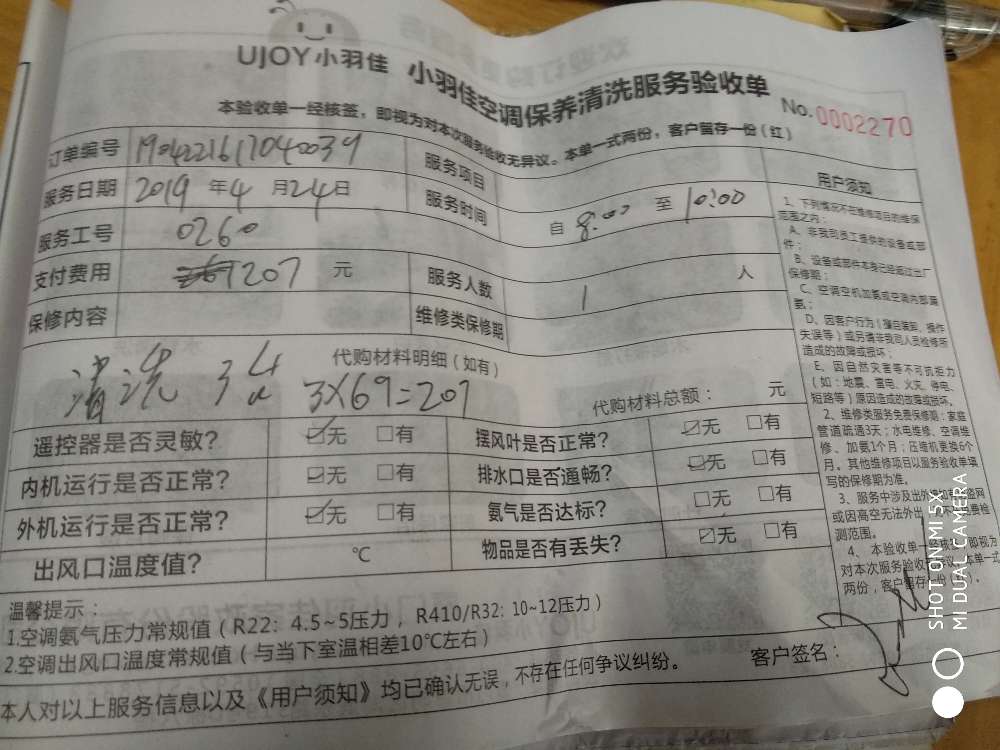 UJOY小羽佳 小羽佳空调保养清洗服务验收单
No.0002270
本验收单一经核签，即视为对本次服务验收无异议。本单一式两份，客户留存一份（红）
订单编号 服务项目
服务日期 2019 年 4 月 24 日 服务时间 自 8:00 至 10:00
服务工号 0260
支付费用 207 元 服务人数 1 人
保修内容 维修类保修期
代购材料明细（如有）
清洗 3台 3×69=207 代购材料总额： 元
遥控器是否灵敏？ ☑无 □有 摆风叶是否正常？ ☑无 □有
内机运行是否正常？ ☑无 □有 排水口是否通畅？ ☑无 □有
外机运行是否正常？ ☑无 □有 氨气是否达标？ □无 □有
出风口温度值？ ℃ 物品是否有丢失？ ☑无 □有
温馨提示：
1.空调氨气压力常规值（R22：4.5~5压力，R410/R32: 10~12压力）
2.空调出风口温度常规值（与当下室温相差10℃左右）
本人对以上服务信息以及《用户须知》均已确认无误，不存在任何争议纠纷。
客户签名：
用户须知
1、下列情况不在维修项目的维保
范围之内：
A、非我司员工提供的设备或部
件；
B、设备或部件本身已经超过出厂
保修期；
C、空调空机加氨或空调内部漏
氨；
D、因客户行为（擅自装卸、操作
失误等）或另请非我司人员检修所
造成的故障或损坏；
E、因自然灾害等不可抗拒力
（如：地震、雷电、火灾、停电、
短路等）原因造成的故障或损坏。
2、维修类服务免费保修期：家庭
管道疏通3天；水电维修、空调维
修、加氨1个月；压缩机更换6个
月。其他维修项目以服务验收单填
写的保修期为准。
3、服务中涉及出外
或因高空无法外出
测范围。
4、本验收单一经核签，即视为
对本次服务验收无异议。本单一式
两份，客户留存一份（红）。
SHOT ON MI 5X
MI DUAL CAMERA